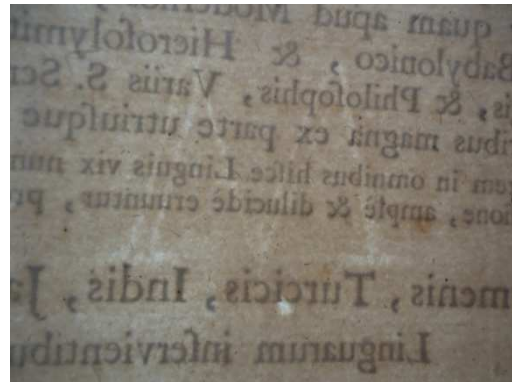 quam apud Modern
Babylonico, & Hieroſolymit
& Philoſophis, Variis S.
magnâ ex parte utriuſque
in omnibus hiſce Linguis vix
amplè & dilucidè eruuntur,
Turcicis, Indis,
Linguarum inſervientibu